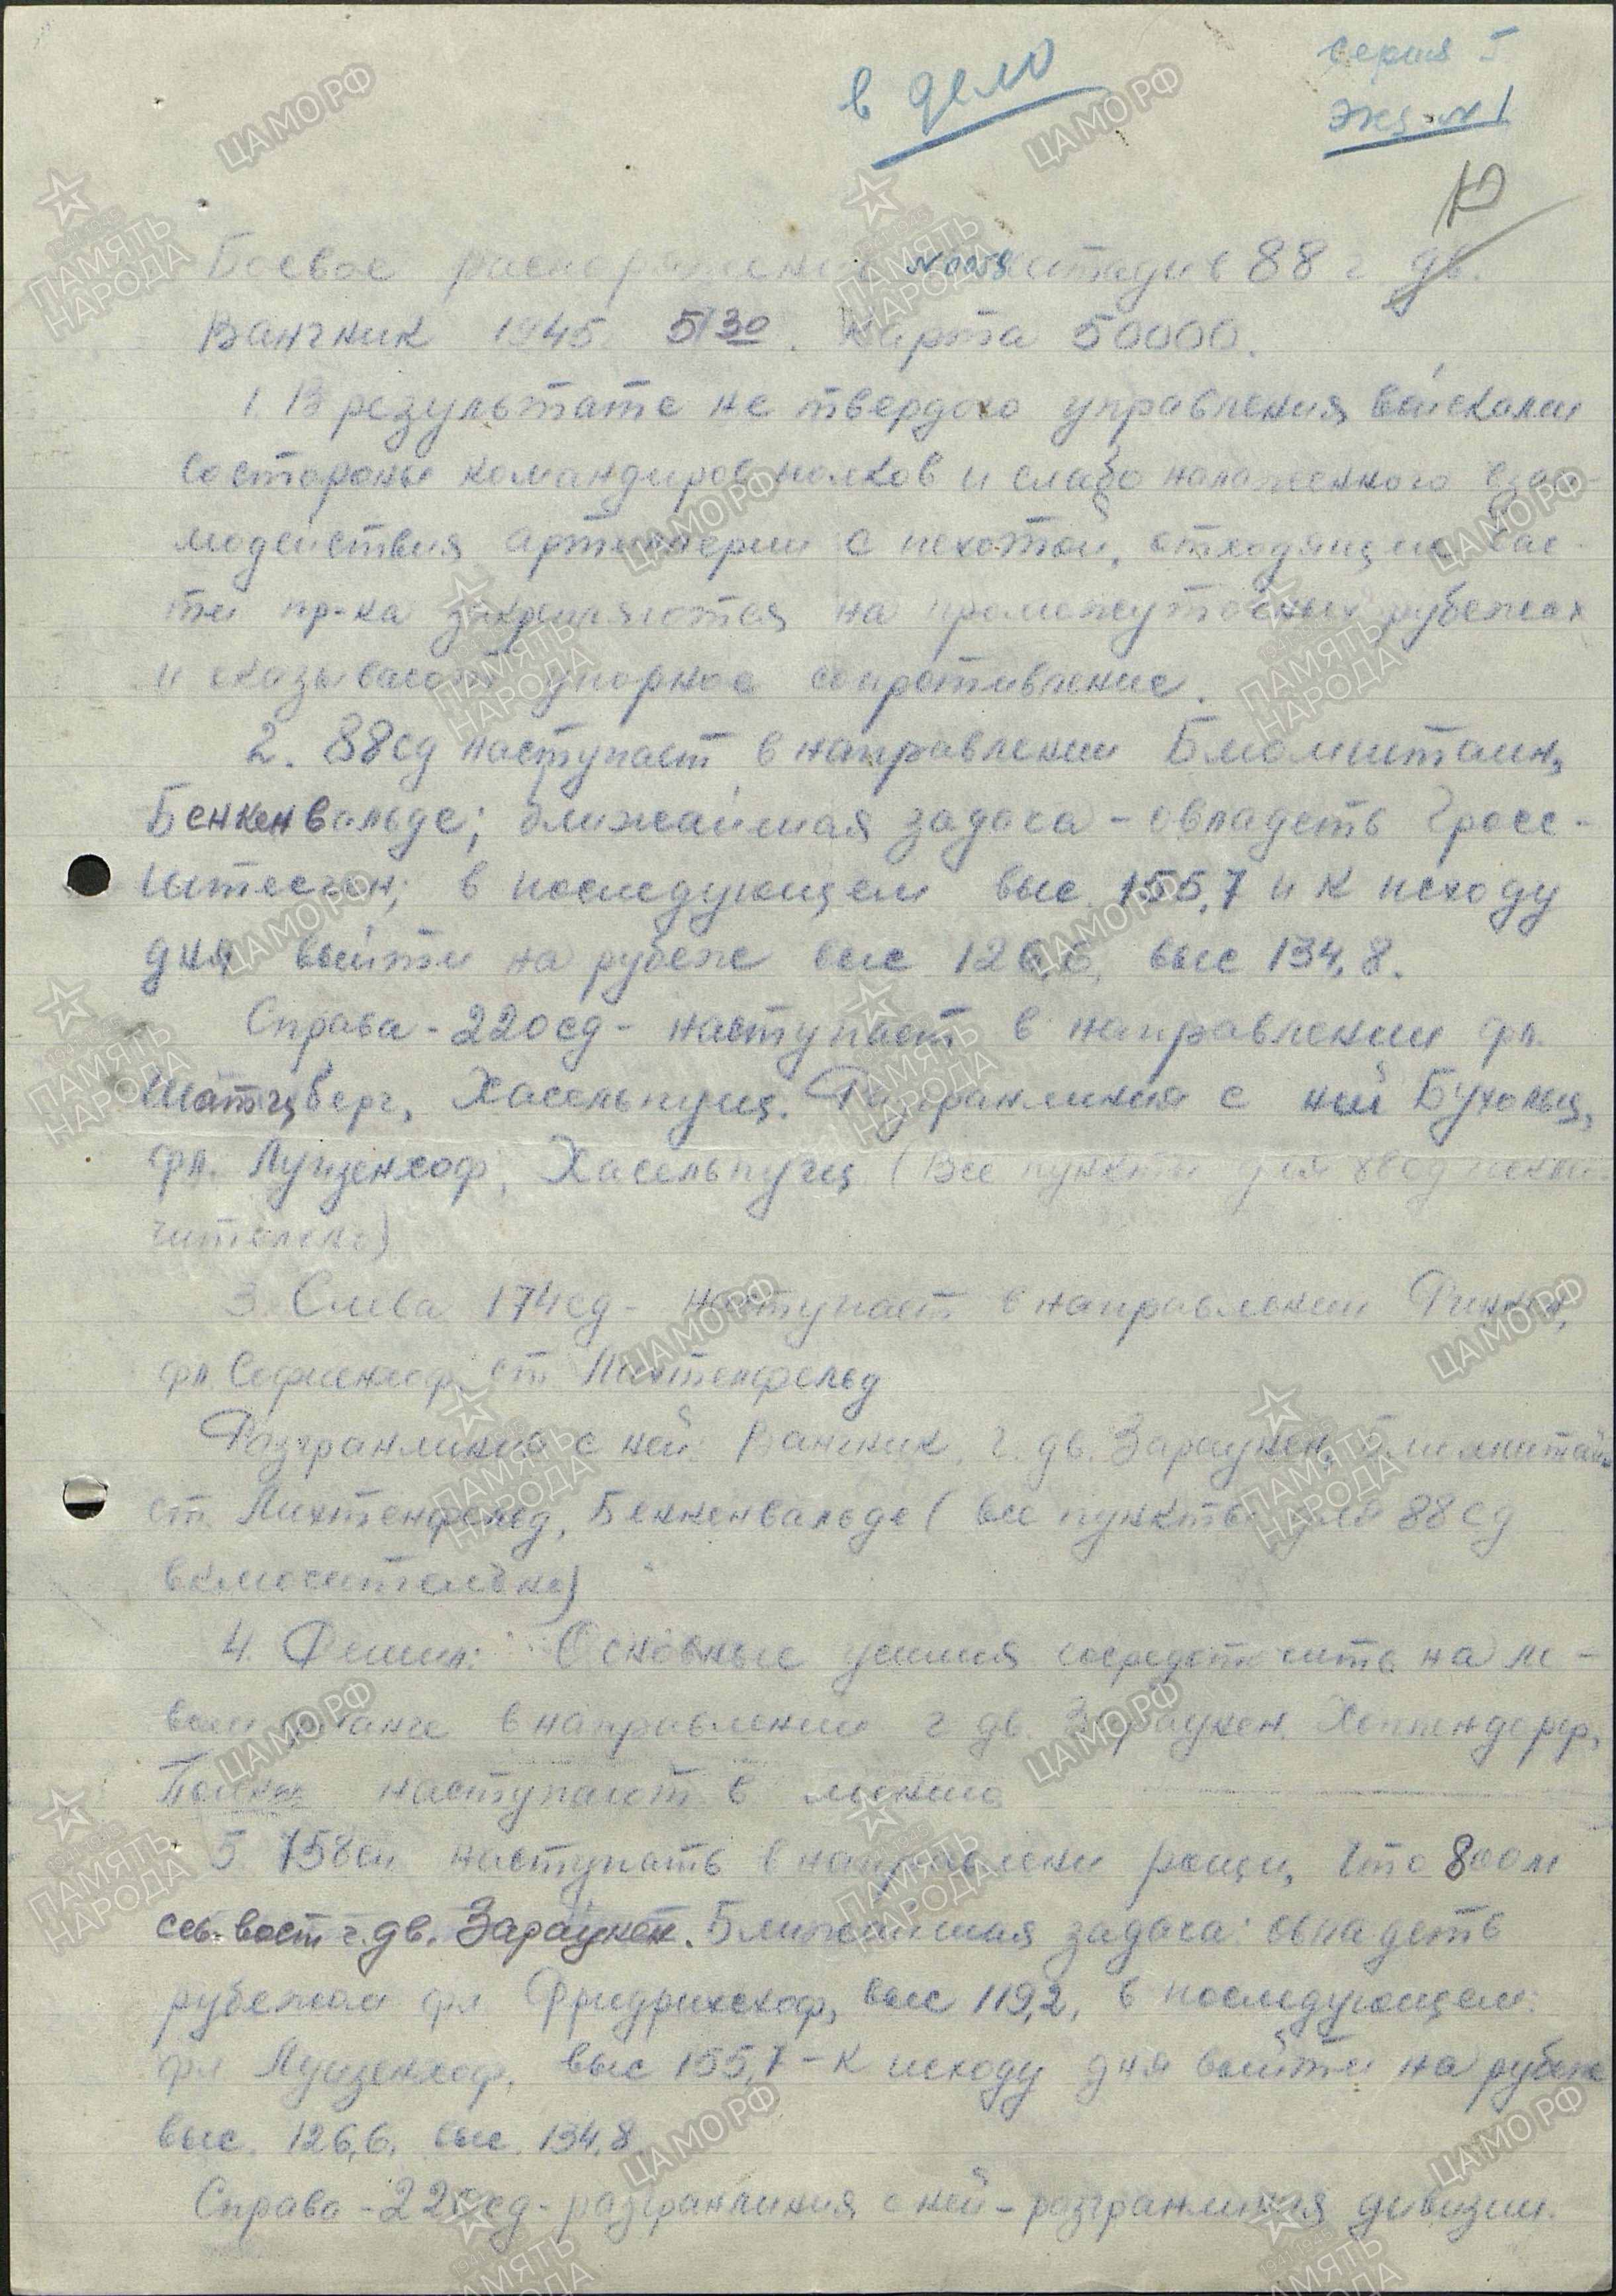 в дело
серия I
Экз. № 1
Боевое распоряжение №0058 штадив 88 г. дв.
Вангник 1945 5/30. Карта 50000.
1. В результате не твердого управления войсками
состороны командиров полков и слабо налаженного взаи-
модействия артиллерии с пехотой, отходящие час-
ти пр-ка закрепляются на промежуточных рубежах
и оказывают упорное сопротивление.
2. 88сд наступает в направлении Блюмштайн,
Бенкенвальде; ближайшая задача - овладеть Гросс-
Штееген; в последующем выс. 155,7 и к исходу
дня выйти на рубеж выс 126,6, выс 134,8.
Справа - 220сд - наступает в направлении фл.
Шатцберг, Хасельпущ. Разгранлиния с ней Бухольц,
фл. Луизенхоф, Хасельпущ (Все пункты для 88сд исклю-
чительно)
3. Слева 174сд - наступает в направлении Финкен,
фл. Софиенхоф, ст. Лихтенфельд
Разгранлиния с ней: Вангник, г. дв. Зараукен, Блюмштайн
ст. Лихтенфельд, Бенкенвальде (все пункты для 88сд
включительно)
4. Решил: Основные усилия сосредоточить на ле-
вом фланге в направлении г. дв. Зараукен,
наступают в линию
5. 758сп наступать в направлении рощи, что 800м
сев.-вост г. дв. Зараукен. Ближайшая задача: овладеть
рубежом фл Фридрихсхоф, выс 119,2, в последующем:
фл Луизенхоф, выс 155,7 - к исходу дня выйти на рубеж
выс. 126,6, выс. 134,8.
Справа - 220сд - разгранлиния с ней - разгранлиния дивизии.